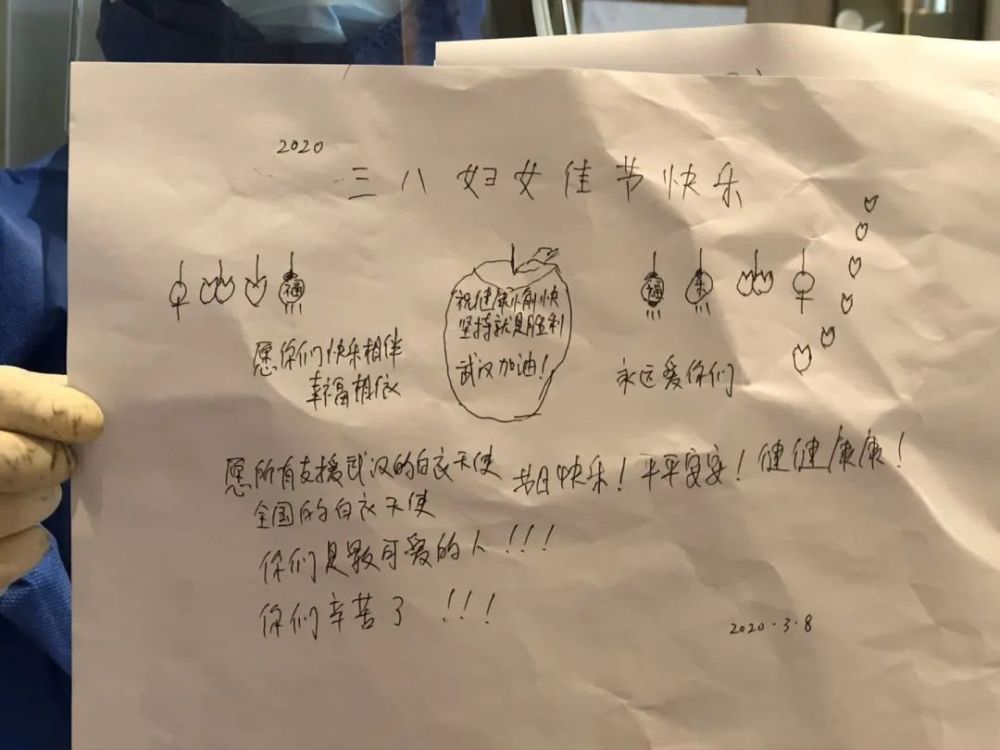 2020
三八妇女佳节快乐
福
祝健康愉快
坚持就是胜利
武汉加油!
福
愿你们快乐相伴
幸福相依
永远爱你们
愿所有支援武汉的白衣天使
全国的白衣天使
节日快乐!平平安安!健健康康!
你们是最可爱的人!!!
你们辛苦了!!!
2020.3.8